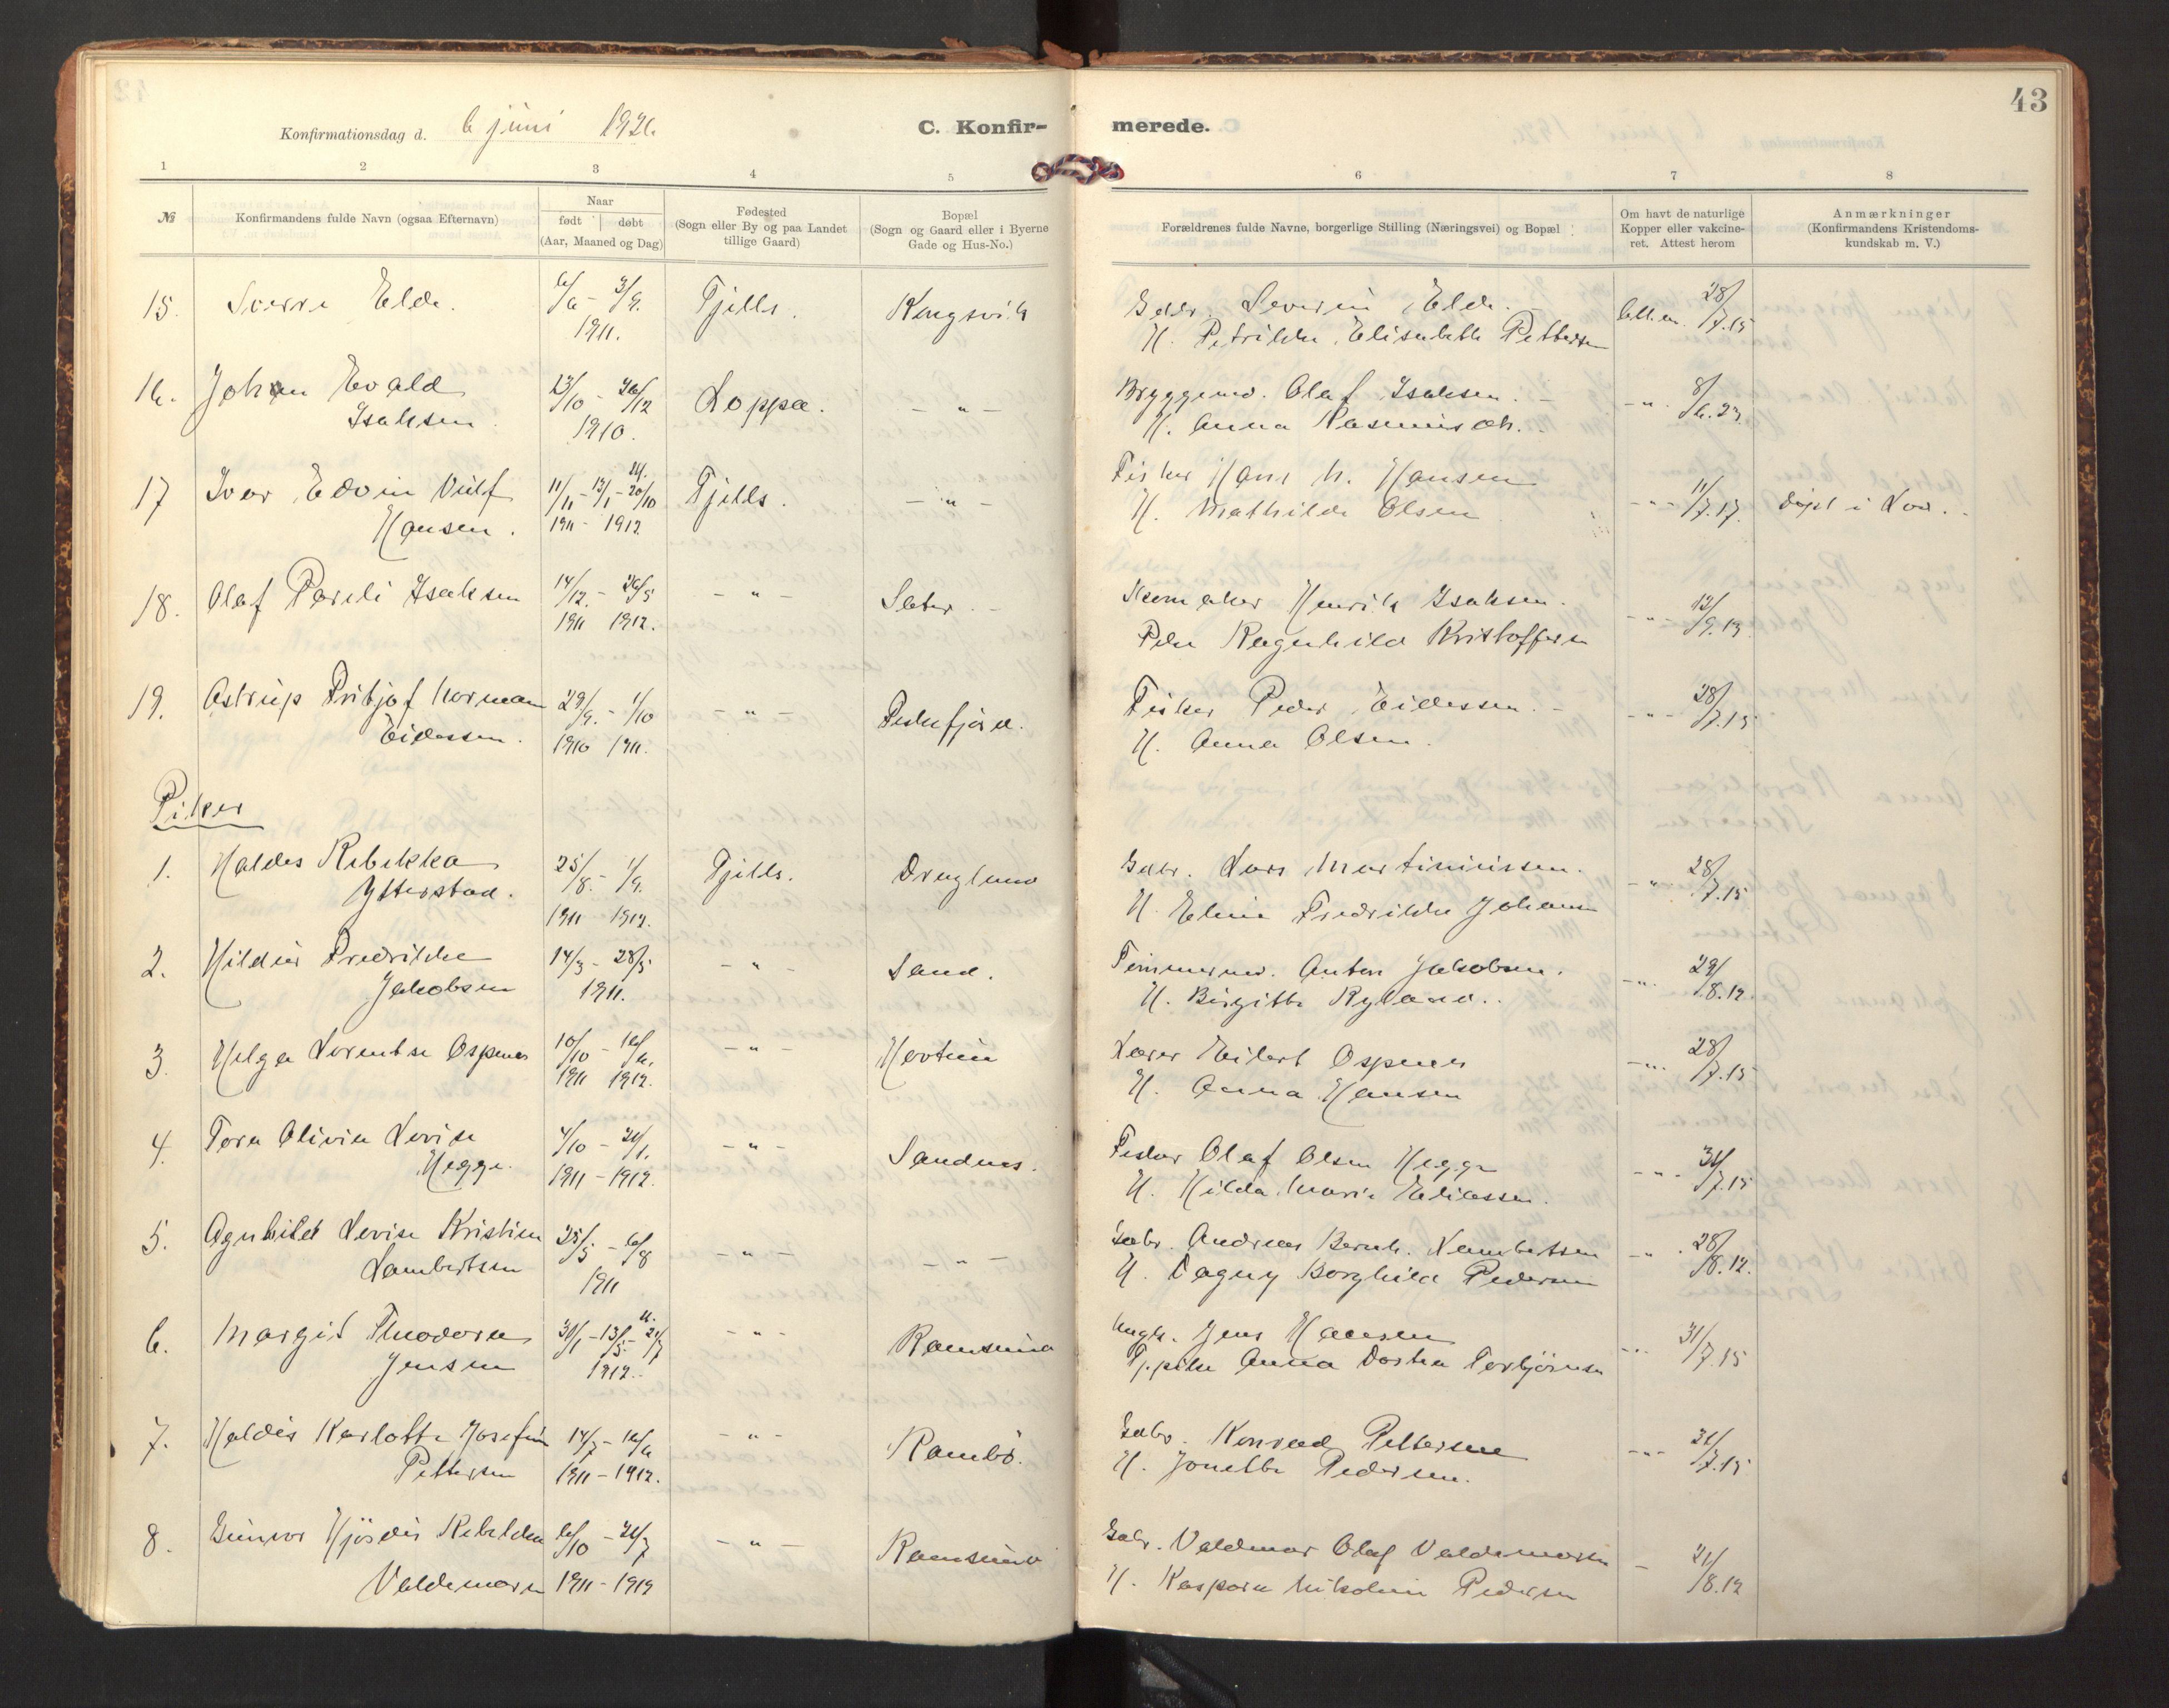 43
Konfirmationsdag d. 6 juni 1926.
C. Konfir-
merede.
1 2 3 4 5 6 7 8
№
Konfirmandens fulde Navn (ogsaa Efternavn)
Naar
født | døbt
(Aar, Maaned og Dag)
Fødested
(Sogn eller By og paa Landet
tillige Gaard)
Bopæl
(Sogn og Gaard eller i Byerne
Gade og Hus-No.)
Forældrenes fulde Navne, borgerlige Stilling (Næringsvei) og Bopæl
Om havt de naturlige
Kopper eller vakcine-
ret. Attest herom
Anmærkninger
(Konfirmandens Kristendoms-
kundskab m. V.)
15. Sverre Elde. 6/6 - 3/9. Tjelds. Kongsvik Gdbr. Severin Elde. 28/7.15
1911. H. Petrikke Elisabeth Pettersen
16. Johan Evald 23/10 - 26/12 Loppa. - " - Bryggemd. Olaf Isaksen. - " - 8/6.23
Isaksen 1910. H. Anna Rasmussen.
17 Ivar Edvin Vulf 11/11 - 13/1 - 20/10 Tjelds. - " - Fisker Hans N. Hansen - " - 11/7.17. døpt i Lød.
Hansen. 1911 - 1912. H. Mathilde Olsen
18. Olaf Pareli Isaksen 14/12. - 26/5 - " - Sæter. Skomaker Henrik Isaksen. - " - 12/9.13
1911 1912. Pike Ragnhild Kristoffersen
19. Astrup Fritjof Norman 29/9. - 1/10 - " - Fiskefjord. Fisker Peder Eidessen. - " - 28/7.15
Eidessen. 1910 1911. H. Anna Olsen.
Piker
1. Haldis Rebekka 25/8. - 1/9. Tjelds. Dragland Gdbr. Lars Martiniussen. - " - 28/7.15
Ytterstad. 1911 1912. H. Eline Fredrikke Johansen
2. Hildur Fredrikke 14/3 - 28/5 - " - Sand. Tømmermd. Anton Jakobsen. - " - 29/8.12
Jakobsen 1911. H. Birgitte Nyland.
3. Helga Lorentse Ospenes 10/10 - 16/6. - " - Hovtun Lærer Eilert Ospenes - " - 28/7.15
1911 1912. H. Anna Hansen
4. Tora Olivia Lovise 4/10 - 21/1. - " - Sandnes. Fisker Olaf Olsen Hegge - " - 31/7.15
Hegge. 1911 - 1912. H. Hilda Marie Eliassen.
5. Agnhild Lovise Kristine 25/5 - 6/8 - " - - " - Gdbr. Andreas Bernh. Lambertsen - " - 28/8.12.
Lambertsen 1911 H. Dagny Borghild Pedersen
6. Margit Theodora 30/1 - 13/5 - 21/7 - " - Ramsund Ungk. Jens Hansen - " - 31/7.15
Jensen 1912. Tj.pike Anna Dortea Torbjørnsen
7. Haldis Karlotte Josefine 14/7 - 16/6 - " - Rambø. Gdbr. Konrad Pettersen - " - 31/7.15
Pettersen 1911 - 1912. H. Jonette Pedersen.
8. Gunvor Hjørdis Rebekka 6/10 - 21/7 - " - Ramsund Gdbr. Valdemar Olaf Valdemarsen - 21/8.12
Valdemarsen 1911 - 1912 H. Kaspara Nikoline Pedersen